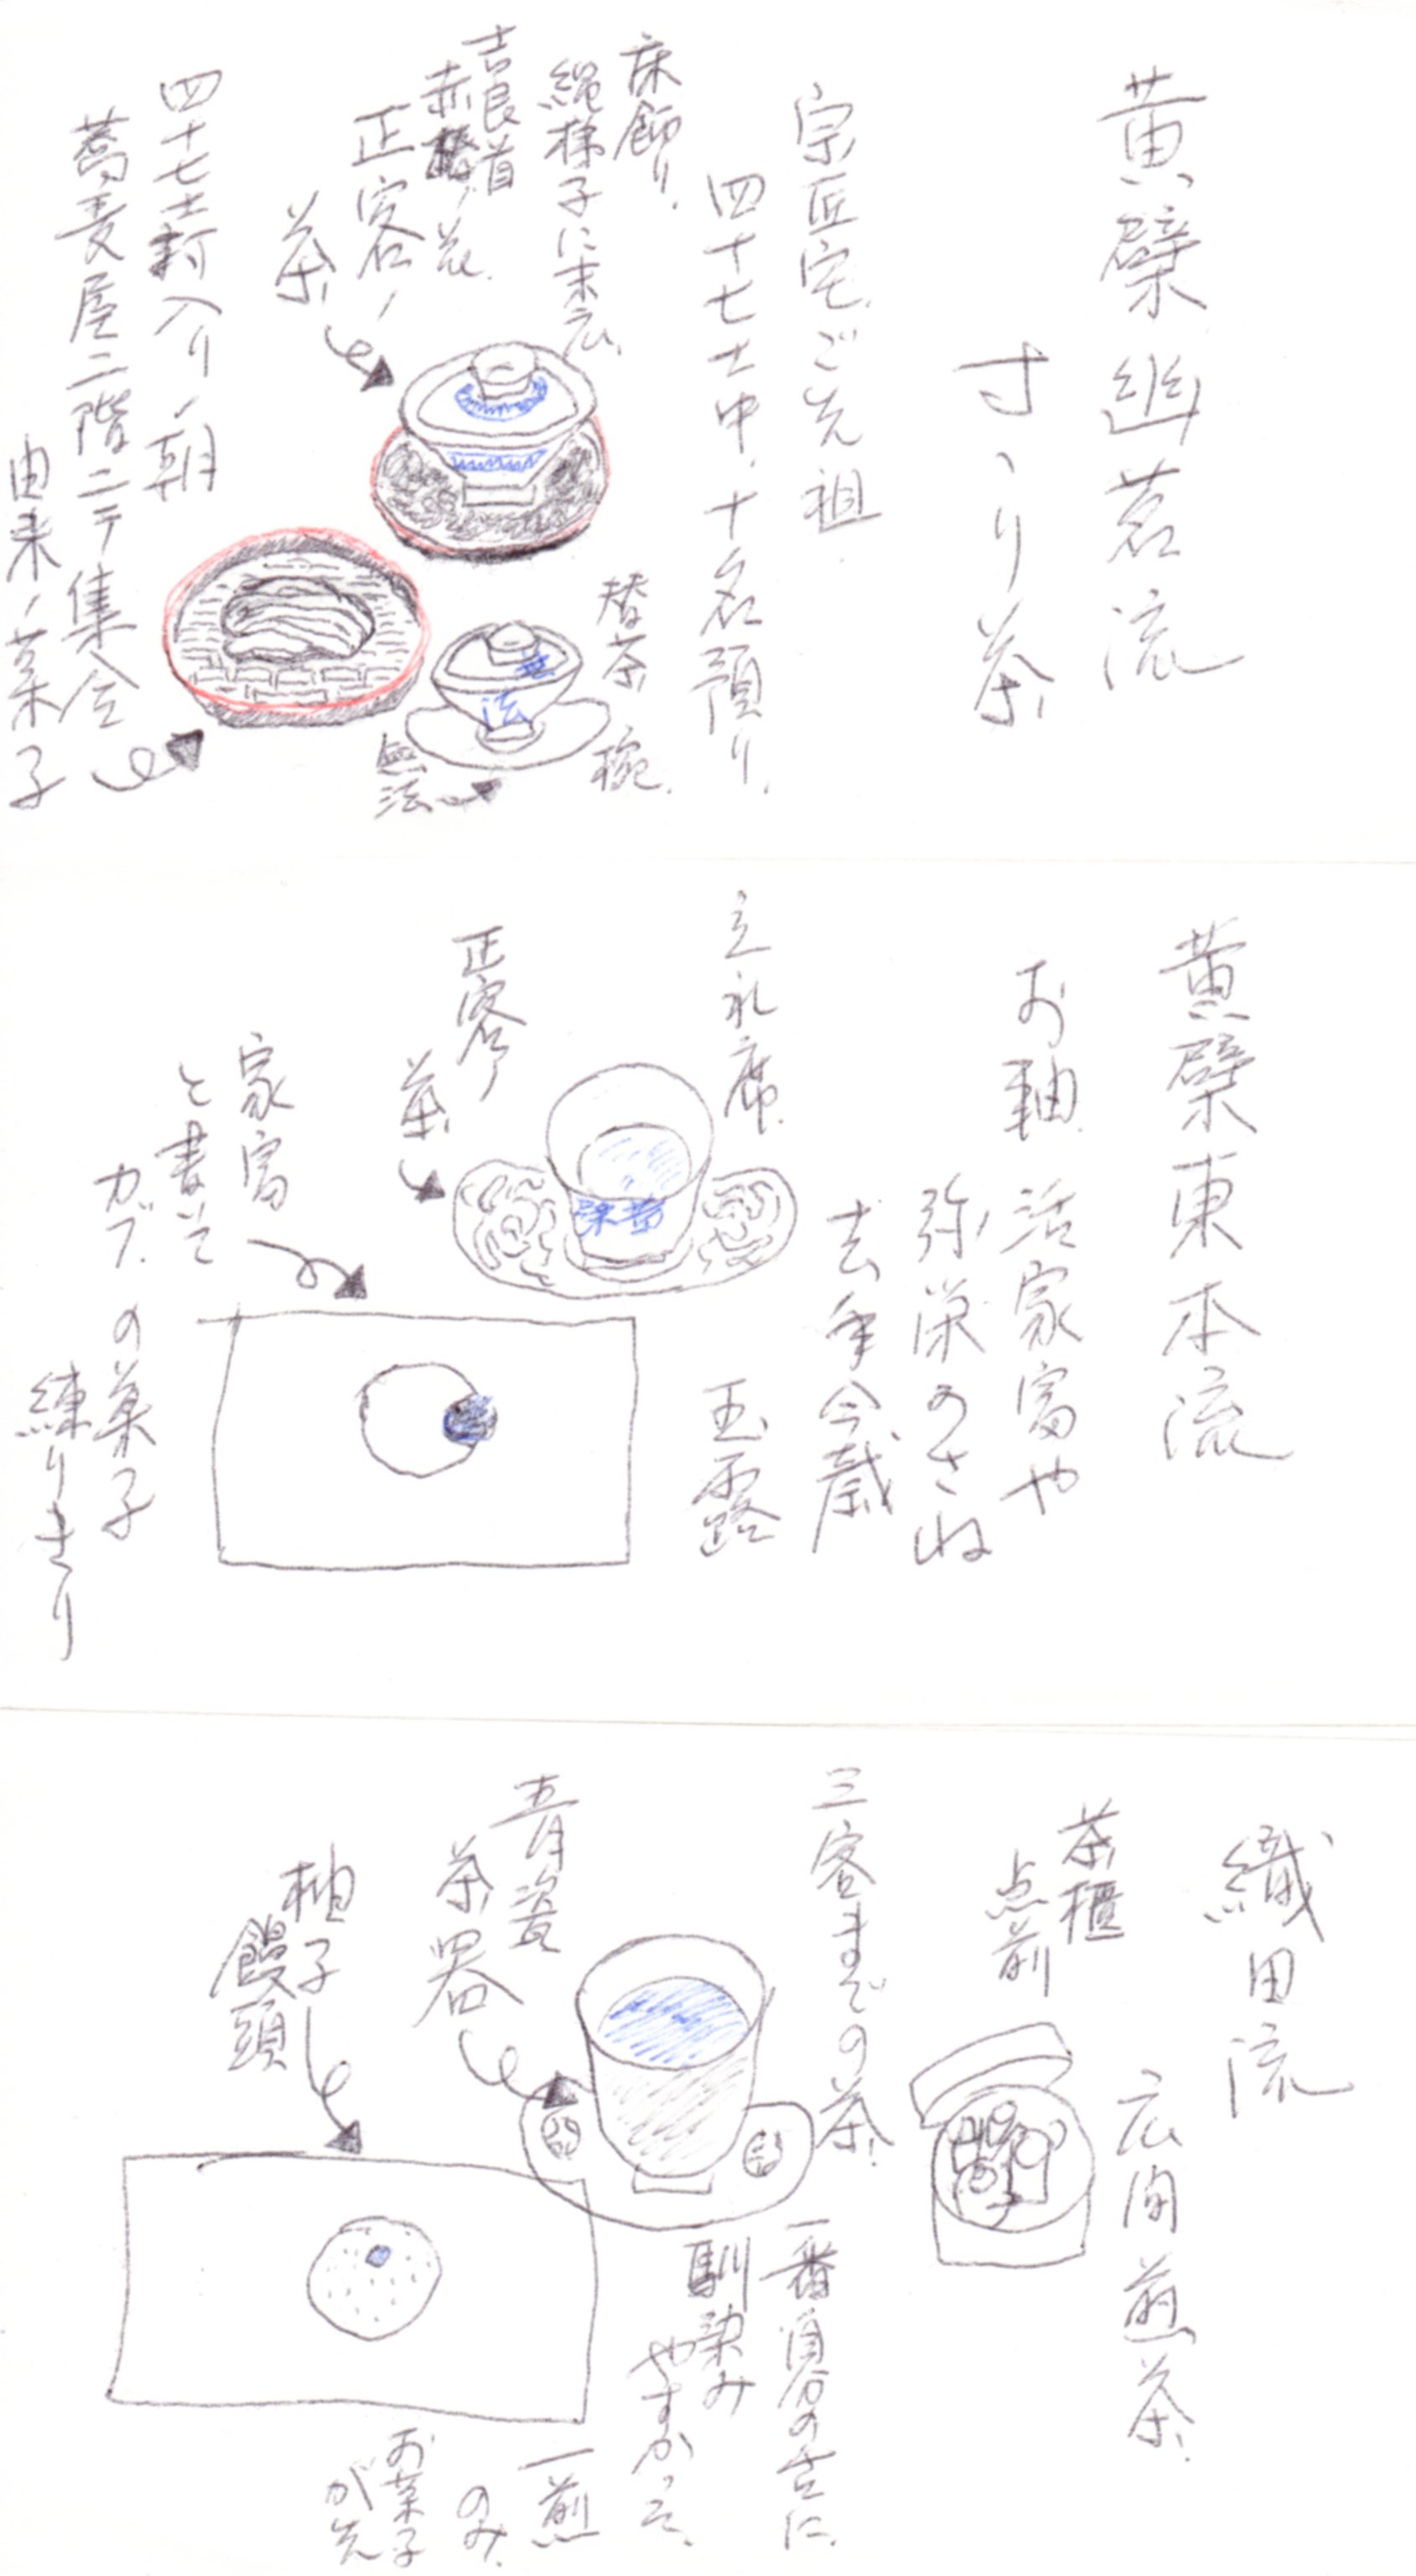 黄檗幽茗流
すゝり茶
宗匠宅ご先祖
四十七士中、十名預り、
床飾り、
縄梯子に末広、
吉良首
赤椿ノ花、
正客ノ
茶
四十七士討入リノ朝
蕎麦屋二階ニテ集会
由来ノ菓子
替茶碗
無法
無
法
黄檗東本流
お軸 活家富や
弥栄のさね
去年今歳
玉露
立礼席
正客ノ
茶
黄檗
家富
と書いて
カブ、の菓子
練りきり
織田流
広間煎茶
茶櫃
点前
三客までの茶
一番自分の舌に、
馴染み
やすかった、
青瓷
茶器
柚子
饅頭
一煎
のみ
お菓子
が先